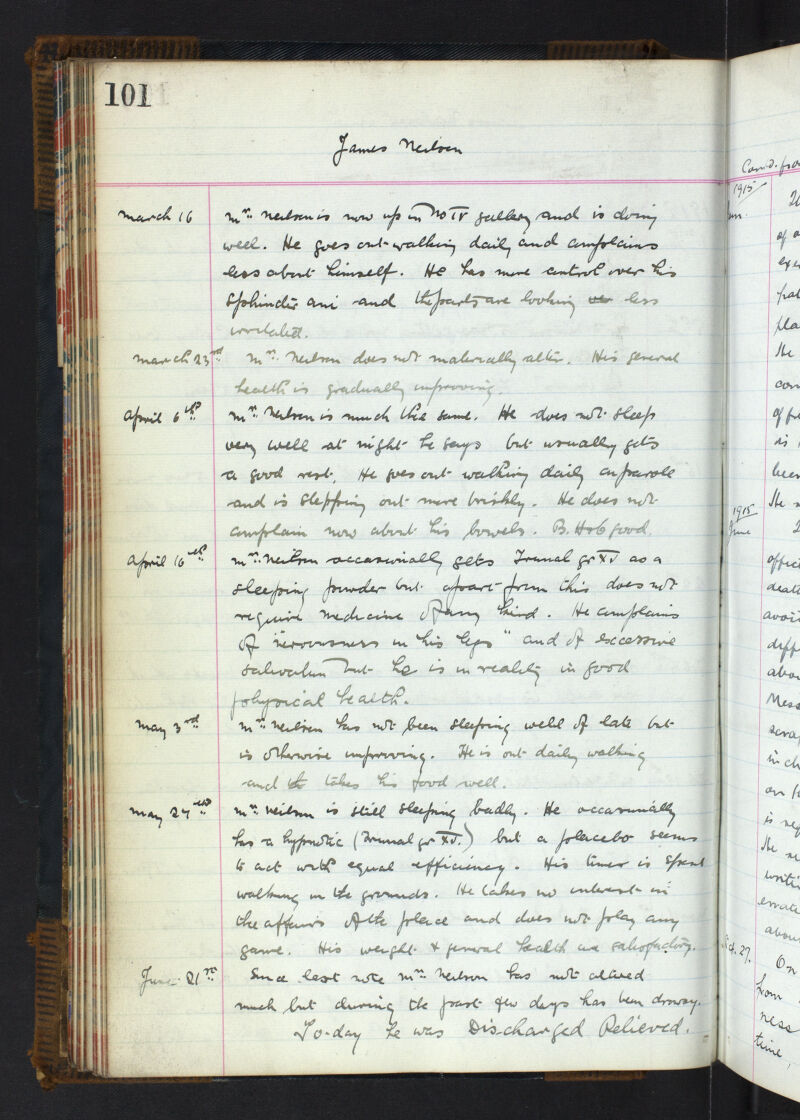 101
James Neilson
March 16 Mr. Neilson is now up in No IV gallery and is doing
well. He goes out walking daily and complains
less about himself. He has more control over his
Sphincter ani and the parts are looking less
irritated.
March 23rd Mr. Neilson does not materially alter. His general
health is gradually improving.
April 6th Mr. Neilson is much the same. He does not sleep
very well at night he says but usually gets
a good rest. He goes out walking daily on parole
and is stepping out more briskly. He does not
complain now about his bowels. B. H & b good.
April 16th Mr. Neilson occasionally gets Trional gr XV as a
sleeping powder but apart from this does not
require medicine of any kind. He complains
of "nervousness in his legs" and of excessive
salivation but he is in reality in good
physical health.
May 3rd Mr. Neilson has not been sleeping well of late but
is otherwise improving. He is out daily walking
and takes his food well.
May 27th Mr. Neilson is still sleeping badly. He occasionally
has a hypnotic (Trional gr XV.) but a placebo seems
to act with equal efficiency. His time is spent
walking in the grounds. He takes no interest in
the affairs of the place and does not play any
game. His weight & general health are satisfactory.
June 21st Since last note Mr. Neilson has not altered
much but during the past few days has been drowsy.
To-day he was Discharged Relieved.
Contd. fro
1915
of
is
been
1915
June
about
Mess
is
writi
about
Oct. 27. On
from
ness
time,